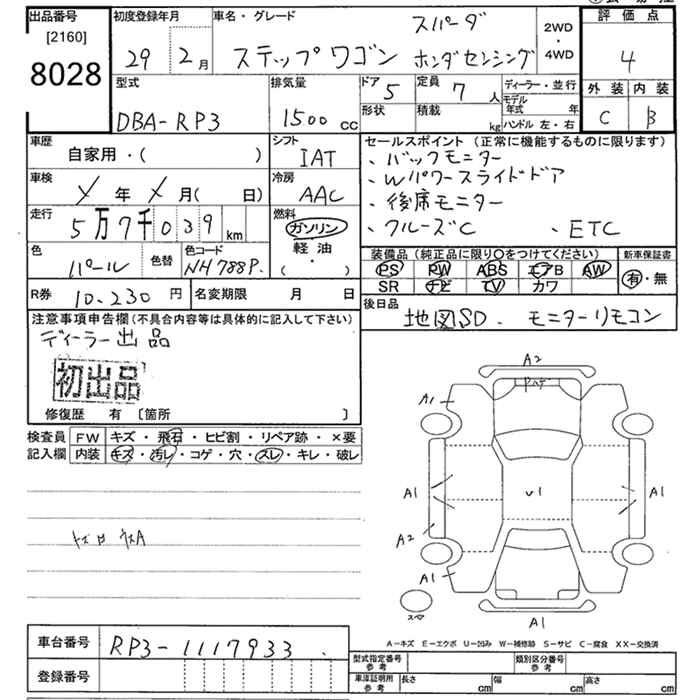 出品番号
[2160]
8028
初度登録年月
29 2月
車名・グレード
スパーダ
ステップワゴン ホンダセンシング
2WD
・
4WD
評価点
4
外装 内装
C B
型式
DBA-RP3
排気量
1500 cc
ドア 5
形状
定員 7 人
積載 kg
ディーラー・並行
モデル年式 年
ハンドル 左・右
車歴
自家用・( )
シフト
IAT
車検
年 月( 日)
冷房
AAC
走行
5万7千039km
燃料
ガソリン
軽油
( )
色
パール
色替
色コード
NH788P.
R券 10,230 円
名変期限 月 日
セールスポイント(正常に機能するものに限ります)
、バックモニター
、Wパワースライドドア
、後席モニター
、クルーズC 、ETC
装備品(純正品に限り○をつけてください)
PS PW ABS エアB AW
SR ナビ TV カワ
新車保証書
有・無
後日品
地図SD. モニターリモコン
注意事項申告欄(不具合内容等は具体的に記入して下さい)
ディーラー出品
初出品
修復歴 有〔箇所 〕
検査員
記入欄
FW キズ・飛石・ヒビ割・リペア跡・×要
内装 キズ・汚レ・コゲ・穴・スレ・キレ・破レ
A2
A1
A1
A1
U1
A1
A2
A1
スペア
A1
A−キズ E−エクボ U−凹み W−補修跡 S−サビ C−腐食 XX−交換済
車台番号 RP3-1117933.
登録番号
型式指定番号
参考
類別区分番号
参考
車庫証明用
参考
長さ cm 幅 cm 高さ cm